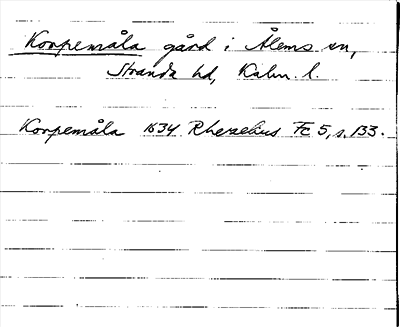 Korpemåla gård i Ålems sn,
Stranda hd, Kalm. l.
Korpemåla 1634 Rhezelius Fc 5, s. 133.